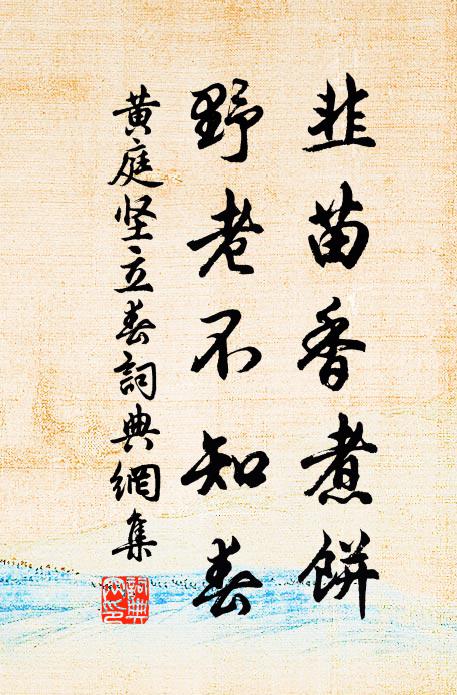 韭苗香煮餅
野老不知春
黃庭坚立春詞典網集